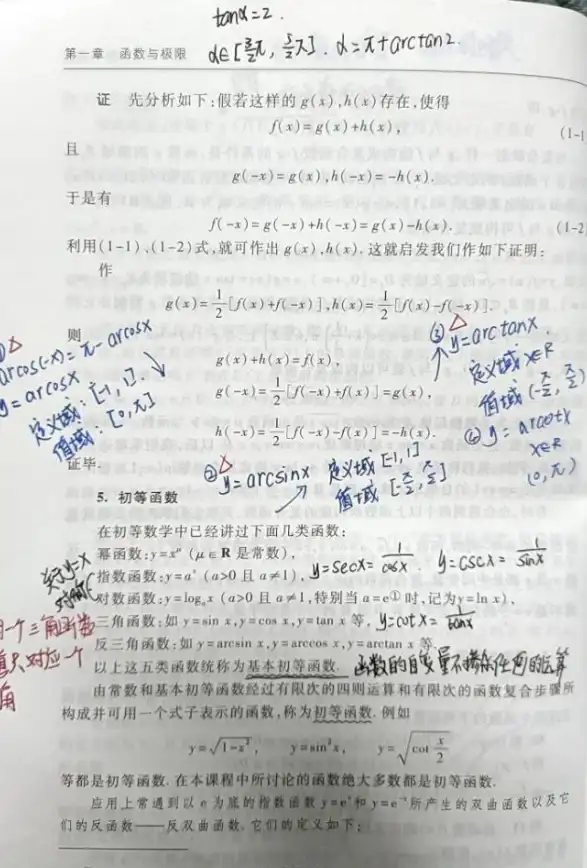 tanα=2.
第一章 函数与极限
α∈[3/2π, 5/2π]. α=π+arctan2.
证 先分析如下:假若这样的 g(x),h(x)存在,使得
f(x)=g(x)+h(x), (1-1
且
g(-x)=g(x),h(-x)=-h(x).
于是有
f(-x)=g(-x)+h(-x)=g(x)-h(x). (1-2
利用(1-1)、(1-2)式,就可作出 g(x),h(x). 这就启发我们作如下证明:
作
g(x)=1/2[f(x)+f(-x)],h(x)=1/2[f(x)-f(-x)].
则
g(x)+h(x)=f(x),
g(-x)=1/2[f(-x)+f(x)]=g(x),
h(-x)=1/2[f(-x)-f(x)]=-h(x).
证毕.
arcos(-x)=π-arcosx
y=arcosx
定义域:[-1,1].
值域:[0,π]
③ y=arctanx.
定义域 x∈R
值域 (-π/2, π/2)
④ y=arcotx
x∈R
(0,π)
② y=arcsinx
定义域 [-1,1]
值域 [-π/2, π/2]
5. 初等函数
在初等数学中已经讲过下面几类函数:
幂函数:y=x^μ (μ∈R 是常数),
指数函数:y=a^x (a>0 且 a≠1), y=secx=1/cosx. y=cscx=1/sinx
对数函数:y=log_a x (a>0 且 a≠1,特别当 a=e①时,记为y=ln x),
三角函数:如 y=sin x,y=cos x,y=tan x 等, y=cotx=1/tanx
反三角函数:如 y=arcsin x,y=arccos x,y=arctan x 等.
关于y=x
对称
一个三角函数
值只对应一个
角
以上这五类函数统称为基本初等函数. 函数的自变量不掺杂任何的运算
由常数和基本初等函数经过有限次的四则运算和有限次的函数复合步骤所
构成并可用一个式子表示的函数,称为初等函数. 例如
y=√(1-x²), y=sin²x, y=√(cot x/2)
等都是初等函数. 在本课程中所讨论的函数绝大多数都是初等函数.
应用上常遇到以 e 为底的指数函数 y=e^x和 y=e^-x所产生的双曲函数以及它
们的反函数——反双曲函数. 它们的定义如下: